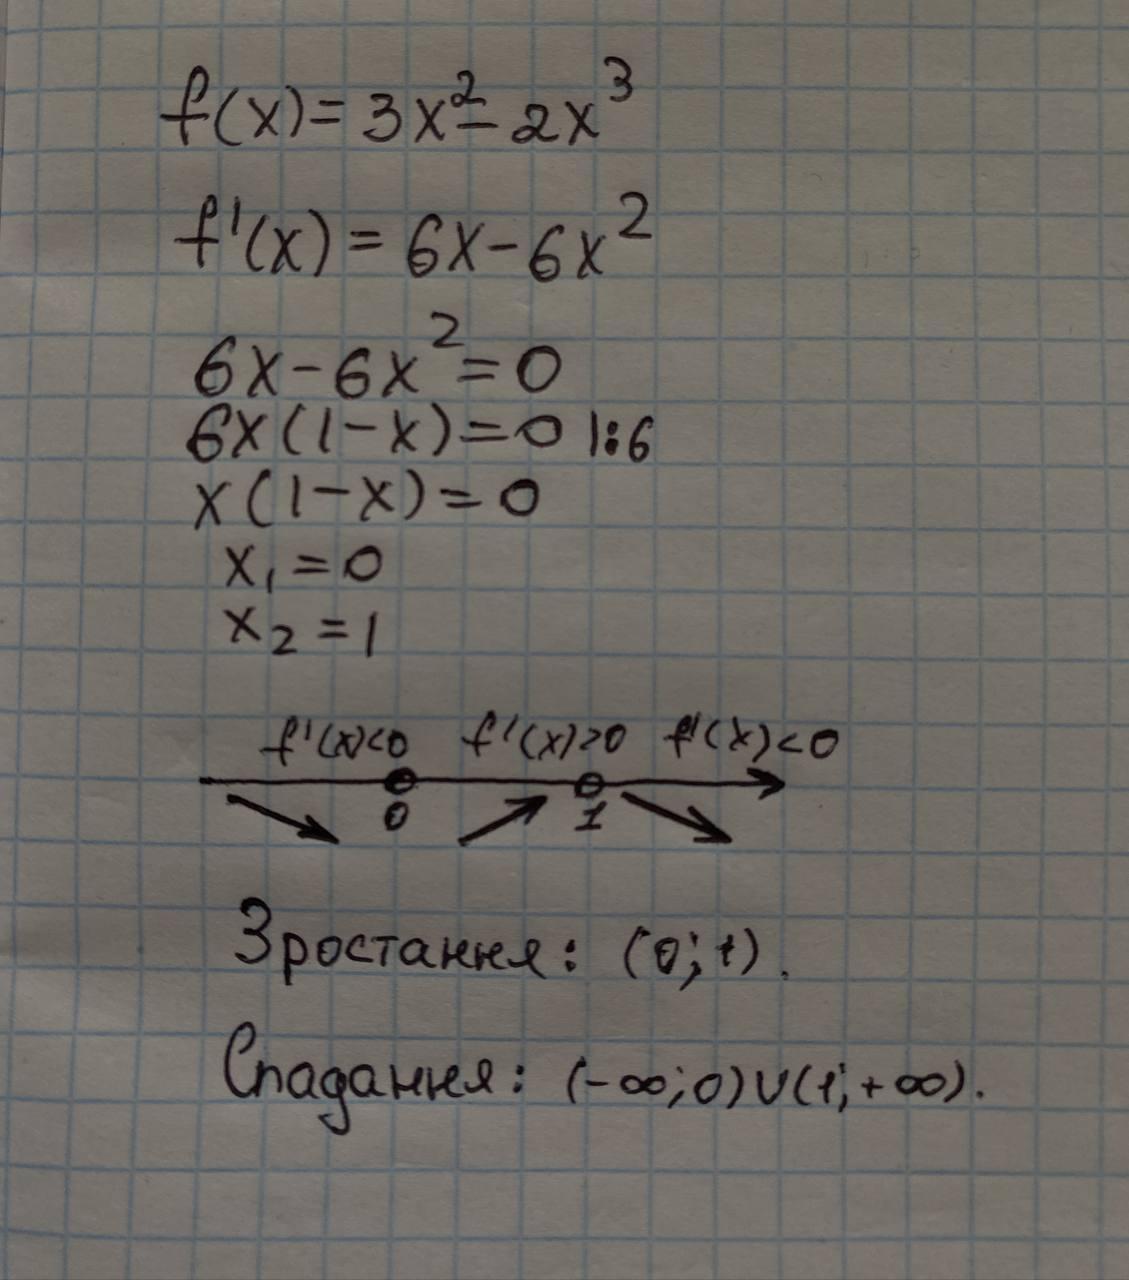 f(x) = 3x² - 2x³
f'(x) = 6x - 6x²
6x - 6x² = 0
6x(1 - x) = 0 |:6
x(1 - x) = 0
x₁ = 0
x₂ = 1
f'(x)<0 f'(x)>0 f'(x)<0
0 1
Зростання: (0; 1).
Спадання: (-∞; 0)∪(1; +∞).